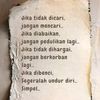 Jika tidak dicari,
jangan mencari..
Jika diabaikan,
jangan pedulikan lagi..
Jika tidak dihargai,
jangan berkorban
lagi..
Jika dibenci,
Segeralah undur diri..
Simpel..